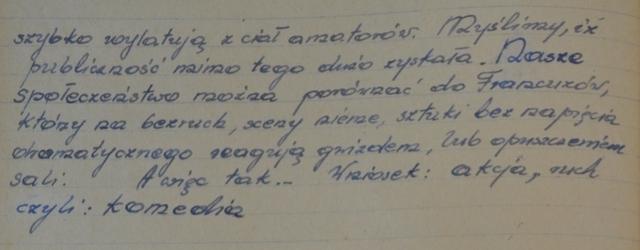 szybko wylatują z ciał amatorów. Myślimy, iż
publiczność mimo tego dużo zyskała. Nasze
społeczeństwo można porównać do Francuzów,
którzy na bezruch, sceny nieme, sztuki bez napięcia
dramatycznego reagują gwizdem, lub opuszczeniem
sali. A więc tak... Wniosek: akcja, ruch
czyli: komedia